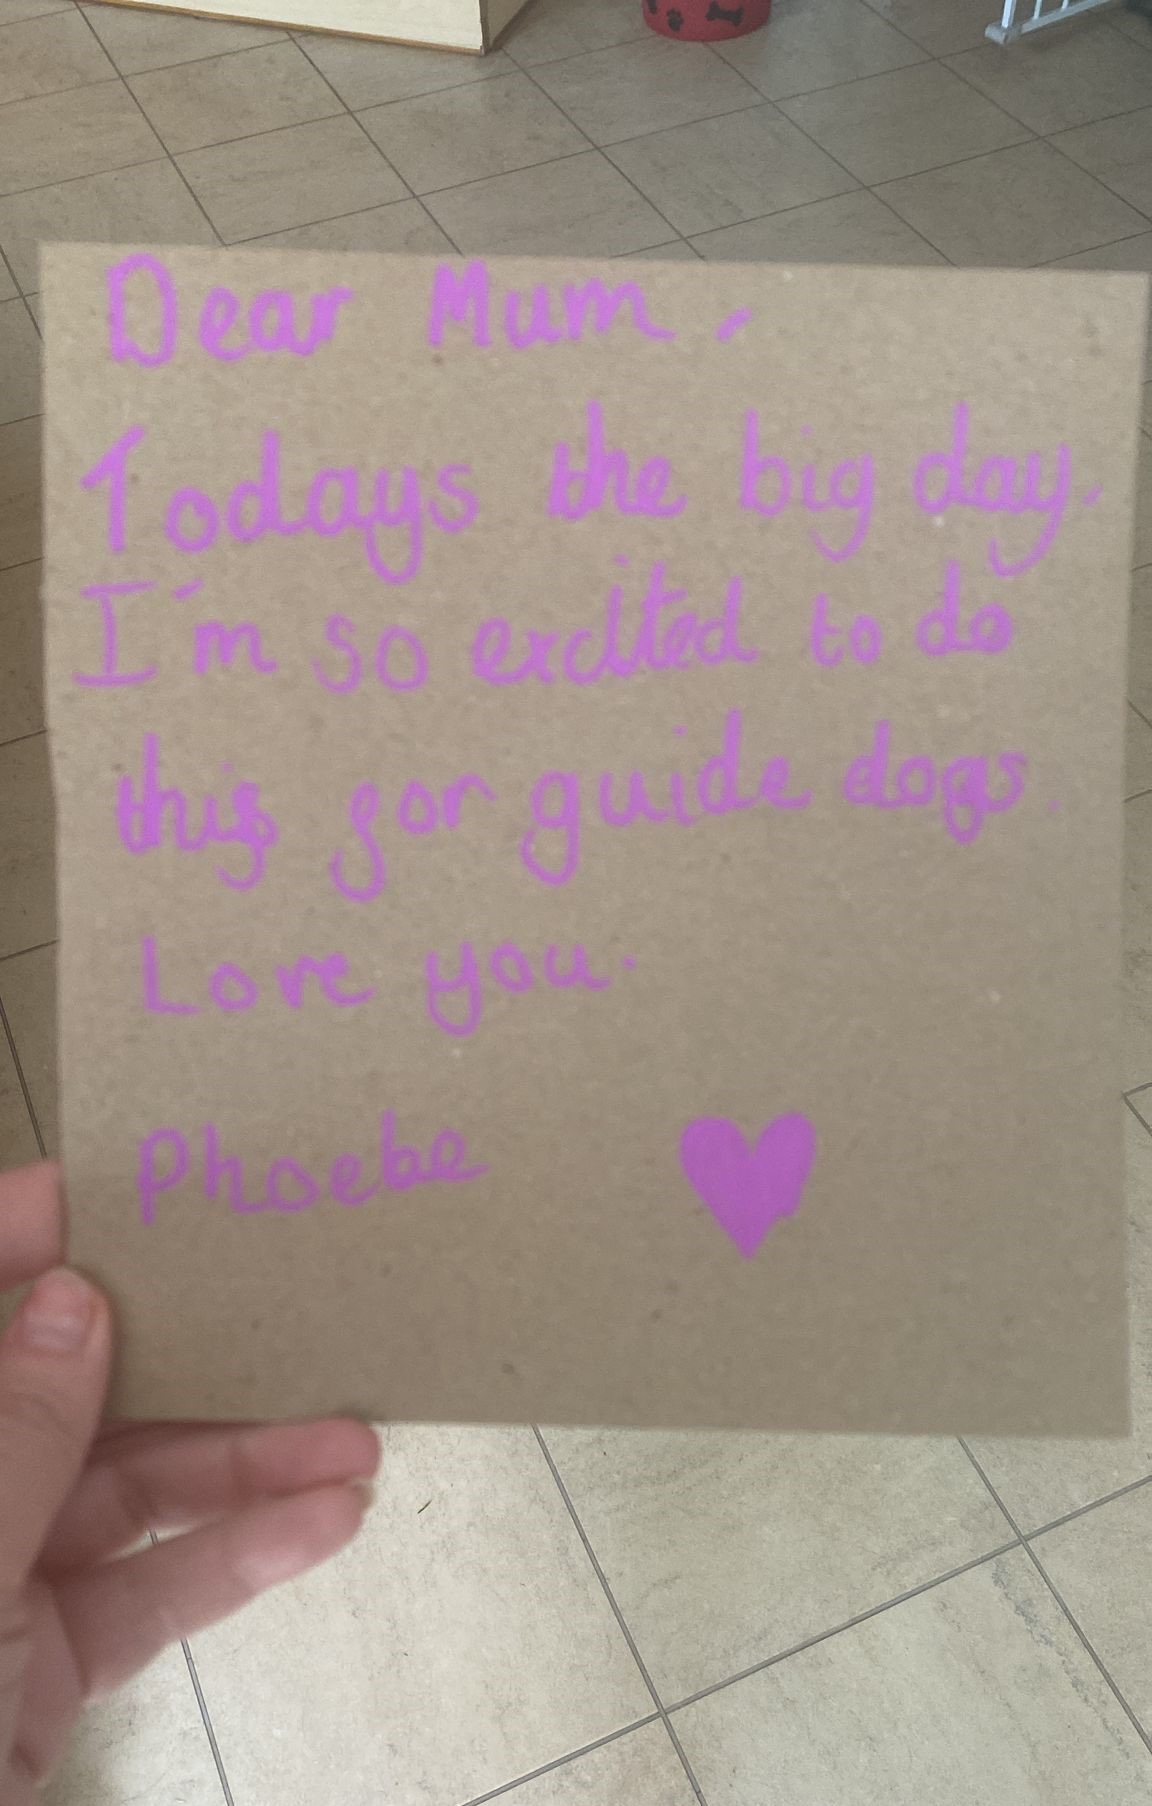 Dear Mum,
Todays the big day.
I'm so excited to do
this for guide dogs.
Love you.
Phoebe